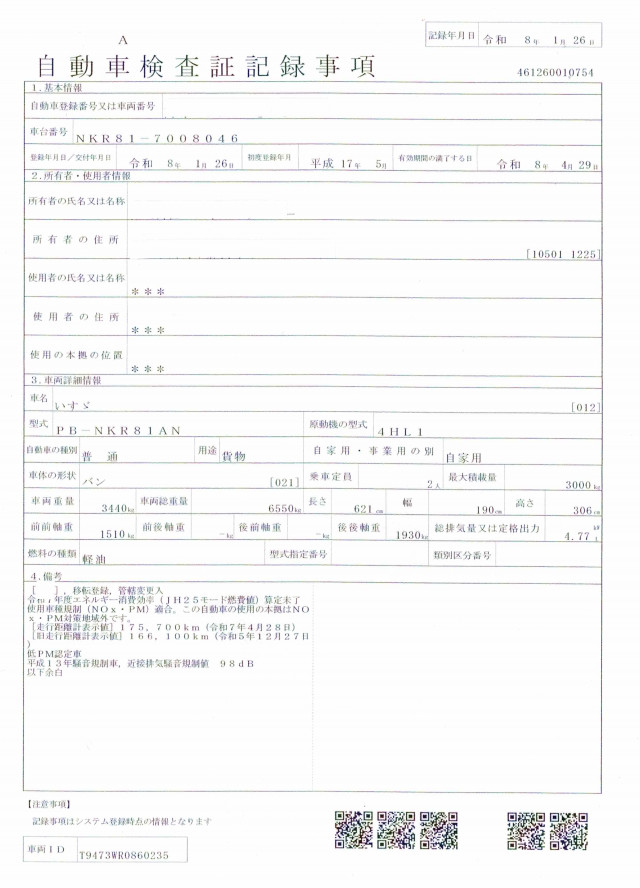 記録年月日 令和 8年 1月 26日
A
自動車検査証記録事項
461260010754
1.基本情報
自動車登録番号又は車両番号
車台番号 NKR81-7008046
登録年月日/交付年月日 令和 8年 1月 26日 初度登録年月 平成 17年 5月 有効期間の満了する日 令和 8年 4月 29日
2.所有者・使用者情報
所有者の氏名又は名称
所有者の住所
[10501 1225]
使用者の氏名又は名称 ***
使用者の住所 ***
使用の本拠の位置 ***
3.車両詳細情報
車名 いすゞ [012]
型式 PB-NKR81AN 原動機の型式 4HL1
自動車の種別 普通 用途 貨物 自家用・事業用の別 自家用
車体の形状 バン [021] 乗車定員 2人 最大積載量 3000kg
車両重量 3440kg 車両総重量 6550kg 長さ 621cm 幅 190cm 高さ 306cm
前前軸重 1510kg 前後軸重 -kg 後前軸重 -kg 後後軸重 1930kg 総排気量又は定格出力 4.77 kW l
燃料の種類 軽油 型式指定番号 類別区分番号
4.備考
[ ],移転登録,管轄変更入
年度エネルギー消費効率(JH25モード燃費値)算定未了
使用車種規制(NOx・PM)適合。この自動車の使用の本拠はNO
x・PM対策地域外です。
[走行距離計表示値]175,700km(令和7年4月28日)
[旧走行距離計表示値]166,100km(令和5年12月27日
)
低PM認定車
平成13年騒音規制車,近接排気騒音規制値 98dB
以下余白
【注意事項】
記録事項はシステム登録時点の情報となります
車両ID T9473WR0860235